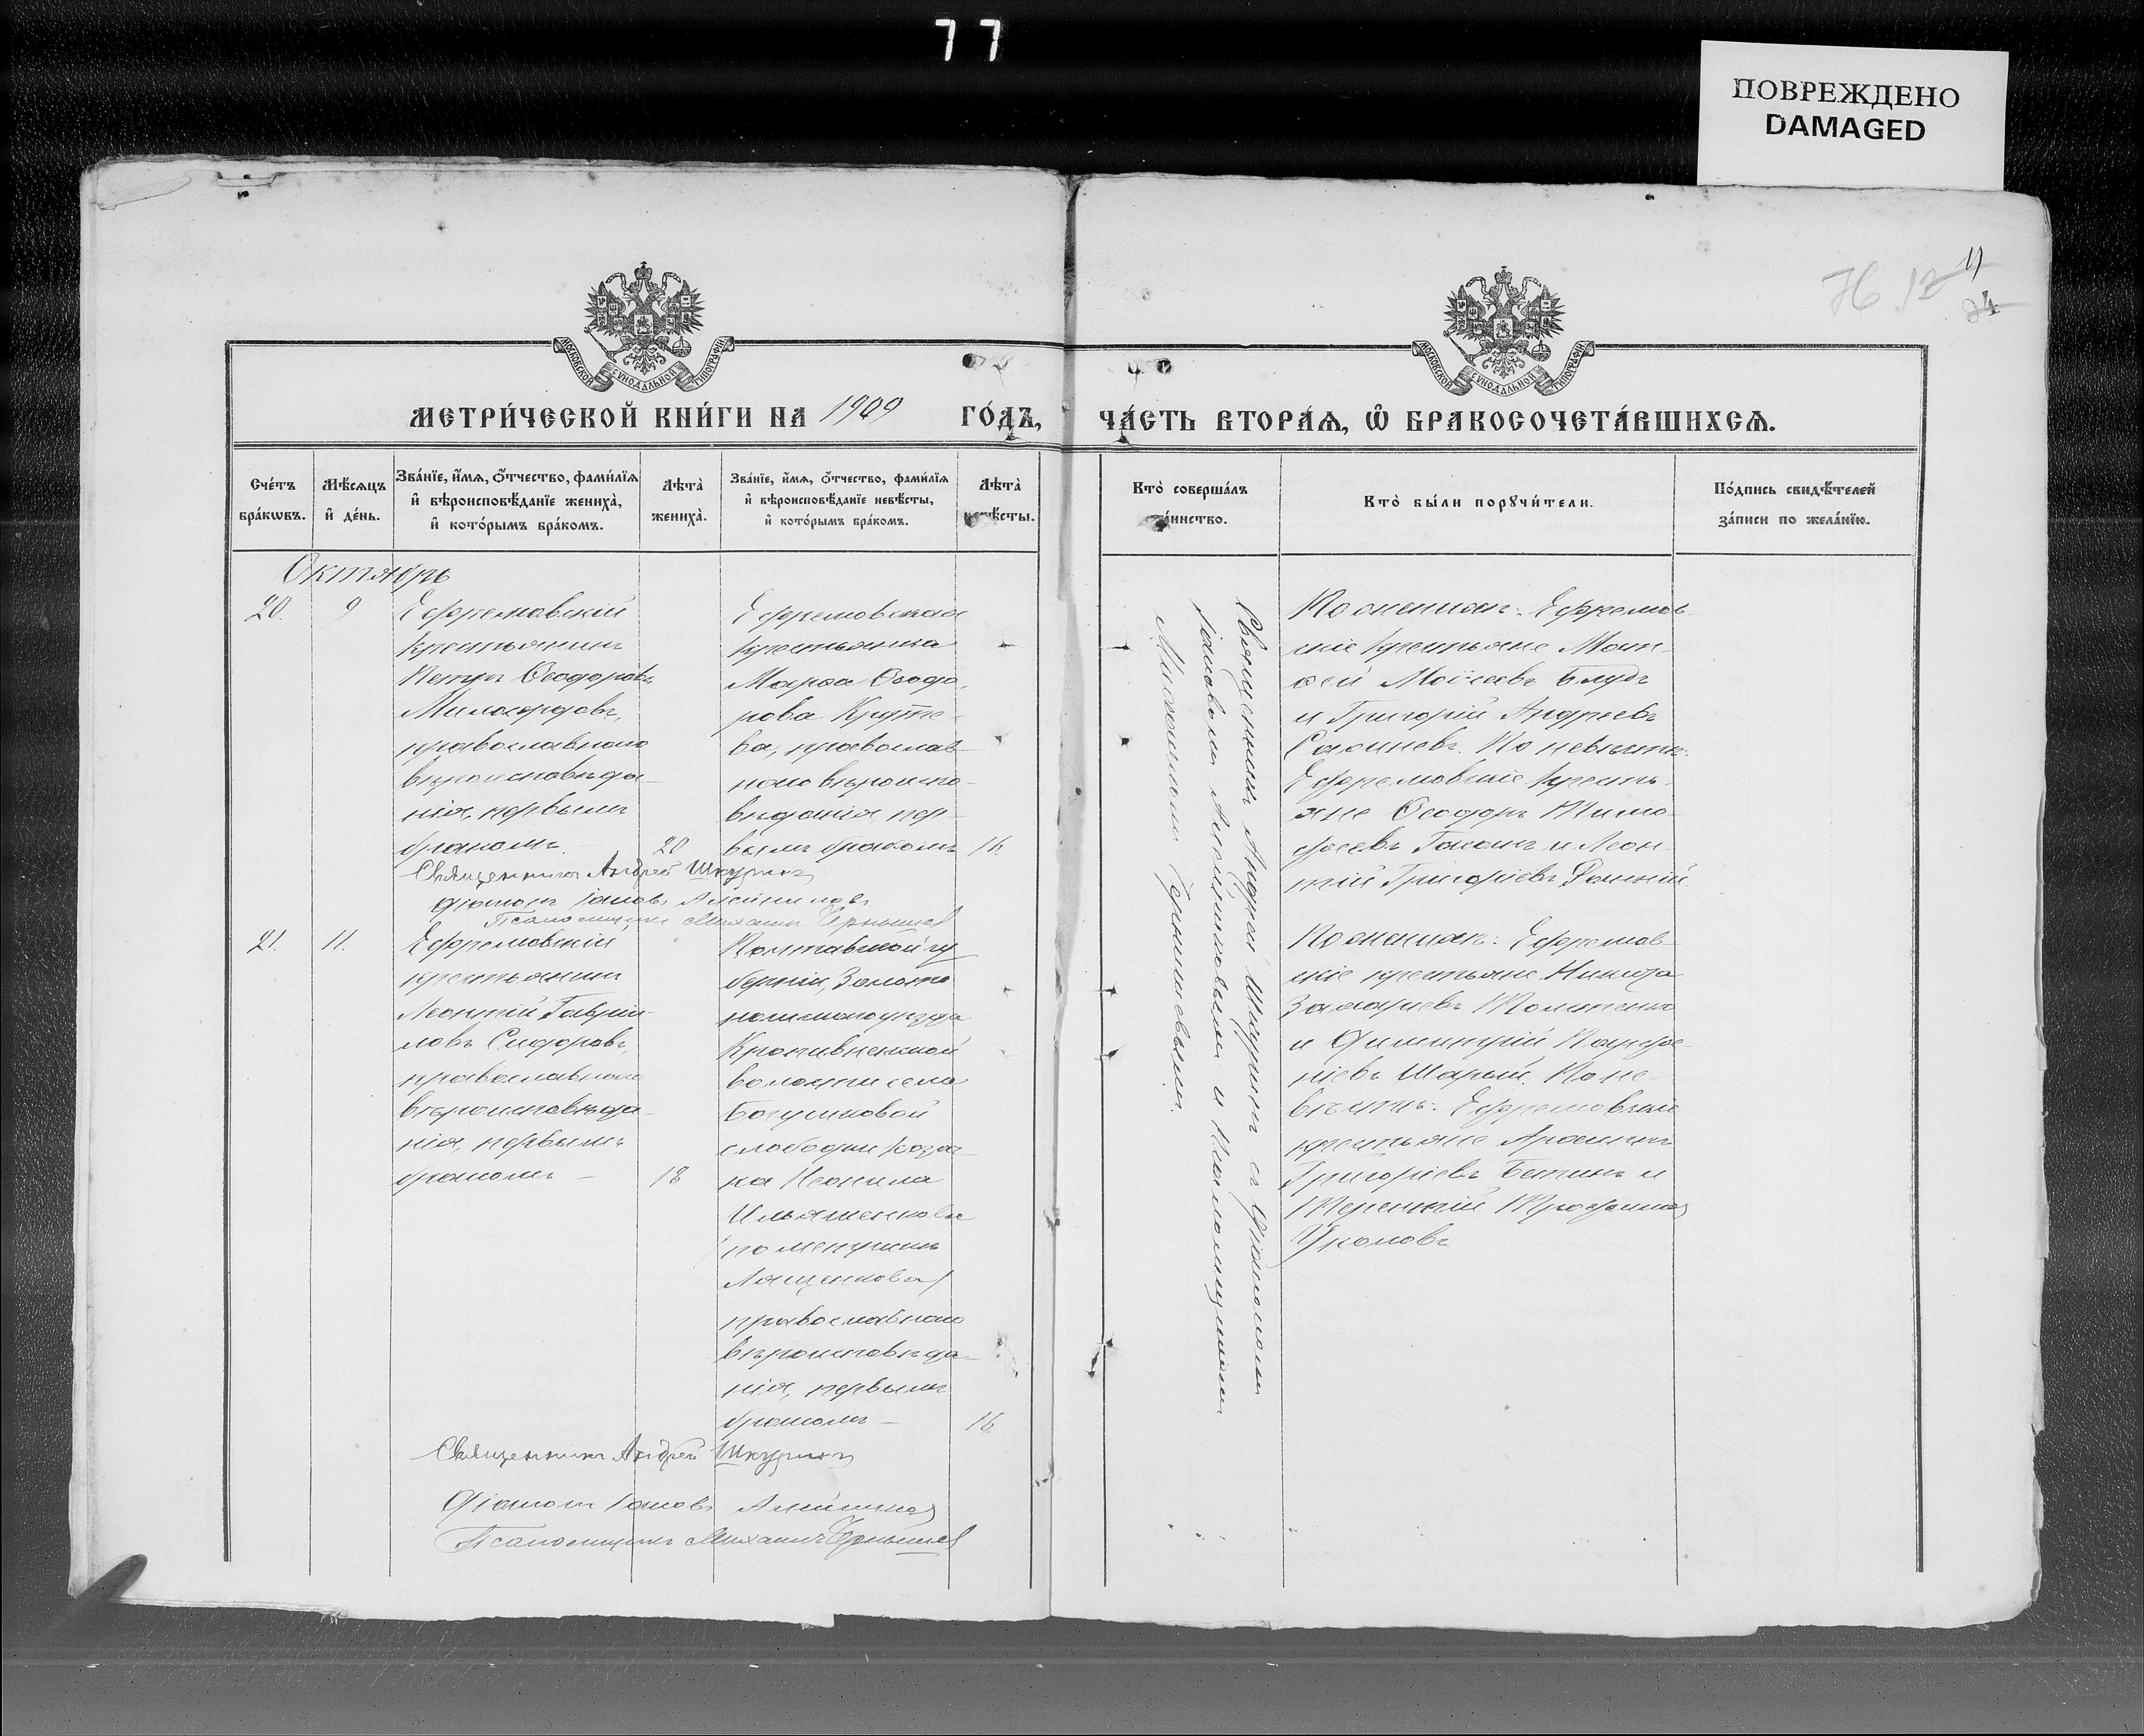 77
ПОВРЕЖДЕНО
DAMAGED
МОСКОВСКОЙ СѴНОДАЛЬНОЙ ТИПОГРАФІИ
МОСКОВСКОЙ СѴНОДАЛЬНОЙ ТИПОГРАФІИ
76 12 11
24
МЕТРИ́ЧЕСКОЙ КНИ́ГИ НА 1909 ГО́ДЪ,
ЧА́СТЬ ВТОРА́Ѧ, Ѽ БРАКОСОЧЕТА́ВШИХСѦ.
Сче́тъ
бра́кѡвъ.
Мѣ́сѧцъ
и҆ де́нь.
Зва́нїе, и҆́мѧ, ѻ҆́тчество, фами́лїѧ
и҆ вѣроисповѣ́данїе жениха̀,
и҆ кото́рымъ бра́комъ.
Лѣта̀
жениха̀.
Зва́нїе, и҆́мѧ, ѻ҆́тчество, фами́лїѧ
и҆ вѣроисповѣ́данїе невѣ́сты,
и҆ кото́рымъ бра́комъ.
Лѣта̀
невѣ́сты.
Кто̀ соверша́лъ
та́инство.
Кто̀ бы́ли порꙋчи́тели.
По́дпись свидѣ́телей
за́писи по жела́нїю.
Октябрь
20.
9
Ефремовскій
крестьянинъ
Петръ Ѳеодоровъ
Милосердовъ,
православнаго
вѣроисповѣда-
нія, первымъ
бракомъ.
20
Ефремовская
крестьянка
Марѳа Ѳеодо-
рова
ва, православ-
наго вѣроиспо-
вѣданія, пер-
вымъ бракомъ
16.
Священникомъ Андреем Шкуринъ съ діакономъ
Іаковомъ Алейниковымъ и псаломщикомъ
Михаиломъ Чернышевымъ.
По женихѣ: Ефремов-
скіе крестьяне Мат-
ѳей Моісеевъ
и Григорій Андреевъ
По невѣстѣ:
Ефремовскіе кресть-
яне Ѳеодоръ Тимо-
феевъ и Леон-
тій Григоріевъ
Священникъ Андрей Шкуринъ
Діаконъ Іаковъ Алейниковъ
Псаломщикъ Михаилъ Чернышев
21.
11.
Ефремовскій
крестьянинъ
Леонтій Гаврии-
ловъ Сидоровъ,
православнаго
вѣроисповѣда-
нія, первымъ
бракомъ –
18
Полтавской гу
берніи, Золото
ношскаго уѣзда
Кропивненской
волости села
Богушковой
слободки казач-
ка Неонила
Ильяшенкова
/по метрикѣ
Лященкова/
православнаго
вѣроисповѣда-
нія, первымъ
бракомъ –
16.
По женихѣ: Ефремов-
скіе крестьяне Никита
Захаріевъ
и Димитрій Парфе-
ніевъ Шарый. По не-
вѣстѣ: Ефремовскіе
крестьяне
Григоріевъ и
Терентій Трофимов
Священникъ Андрей Шкуринъ
Діаконъ Іаковъ Алейников
Псаломщикъ Михаилъ Чернышев